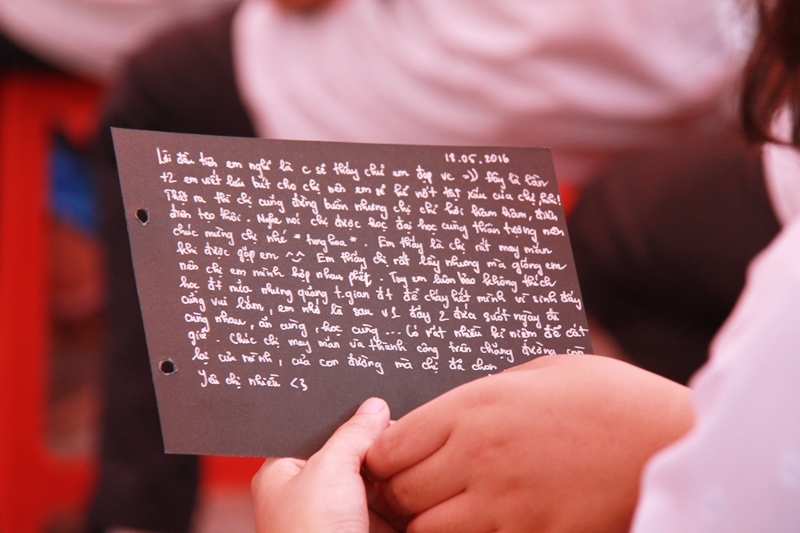 18.05.2016
Lời đầu tiên em nghĩ là c sẽ thấy chữ em đẹp vc =)) Đây là lần
t2 em viết lưu bút cho chị nên em sẽ kể nốt tật xấu của chị
Thật ra thì chị cũng đừng buồn nhưng chị chỉ hơi hâm hâm,
điên teo thôi. Nghe nói chị được học đại học cùng nên
chúc mừng chị nhé * tung hoa *. Em thấy là chị rất may mắn
khi được gặp em ^^ Em thấy chị rất lầy nhưng mà giống em
nên chị em mình hợp nhau phết. Tuy em luôn bảo không thích
học đt nữa nhưng quãng t.gian đt để cháy hết mình vì sinh đấy
cũng vui lắm, em nhớ là sau v1 đây 2 đứa suốt ngày đi
cùng nhau, ăn cùng, học cùng ... Có rất nhiều kỉ niệm để cất
giữ. Chúc chị may mắn và thành công trên chặng đường còn
lại của mình, của con đường mà chị đã chọn.
Yêu chị nhiều <3